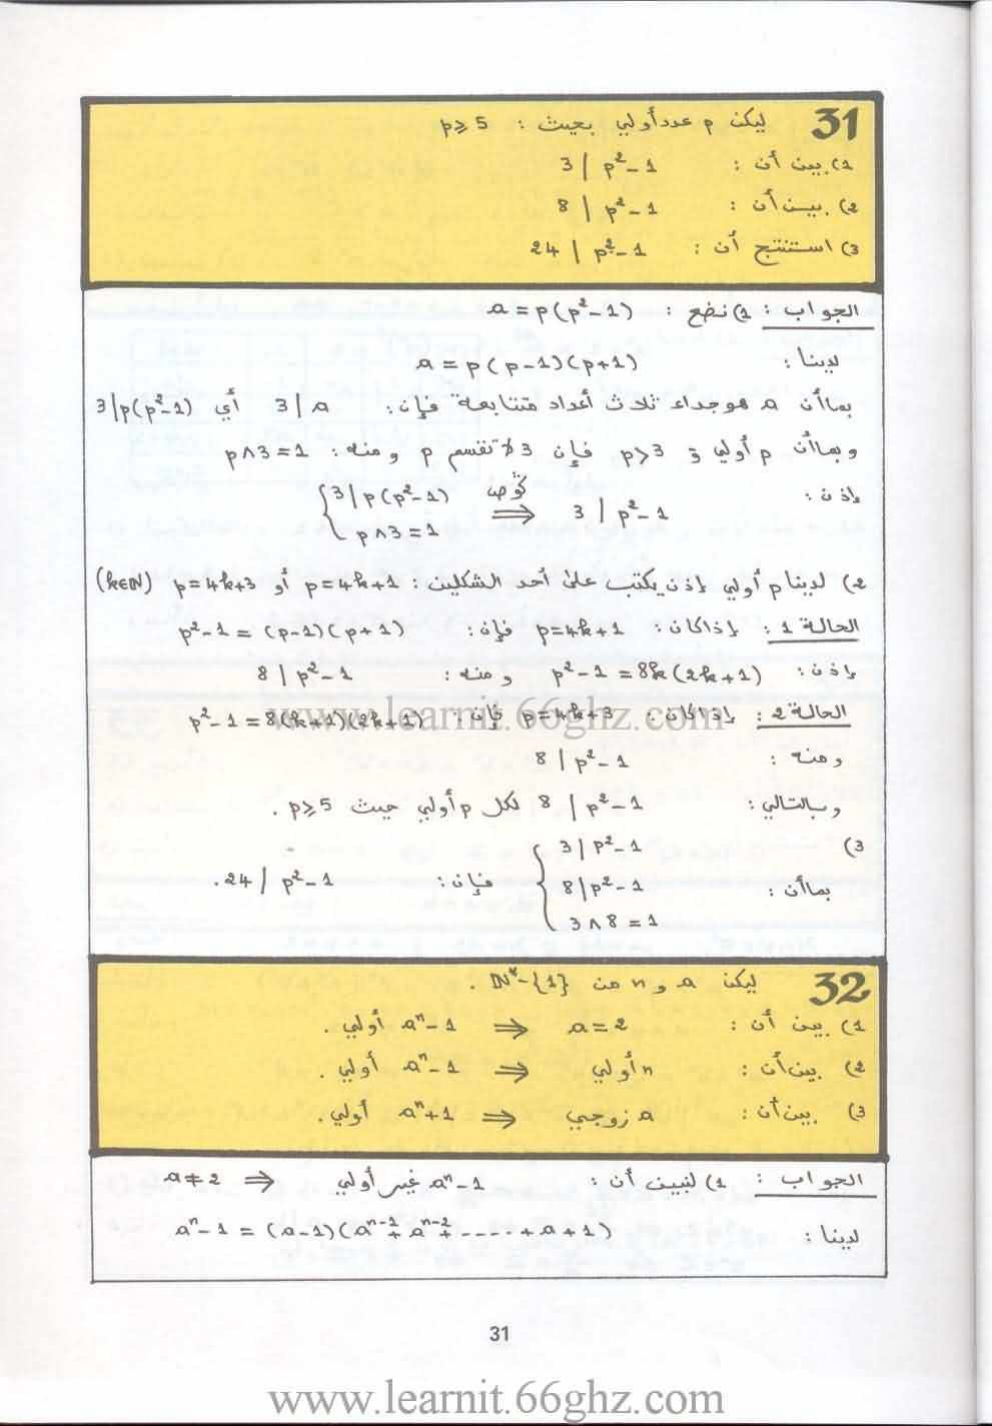 31 ليكن p عدد أولي بحيث : p ⩾ 5
1) بين أن : 3 | p²-1
2) بين أن : 8 | p²-1
3) استنتج أن : 24 | p²-1
الجواب : 1) نضع : a = p(p²-1)
لدينا : a = p(p-1)(p+1)
بما أن a هو جداء ثلاث أعداد متتابعة فإن : 3 | a أي 3 | p(p²-1)
وبما أن p أولي و p>3 فإن 3 لا تقسم p ومنه : p∧3=1
إذن : { 3 | p(p²-1) , p∧3=1 ⟹ (گوص) 3 | p²-1
2) لدينا p أولي إذن يكتب على أحد الشكلين : p=4k+1 أو p=4k+3 (k∈ℕ)
الحالة 1 : إذا كان : p=4k+1 فإن : p²-1 = (p-1)(p+1)
إذن : p²-1 = 8k(2k+1) ومنه : 8 | p²-1
الحالة 2 : إذا كان : p=4k+3 فإن : p²-1 = 8(k+1)(2k+1)
www.learnit.66ghz.com
ومنه : 8 | p²-1
وبالتالي : 8 | p²-1 لكل p أولي حيث p ⩾ 5 .
3)
بما أن : { 3 | p²-1 , 8 | p²-1 , 3∧8=1 فإن : 24 | p²-1 .
32 ليكن a و n من ℕ*-{1} .
1) بين أن : a=2 ⟸ aⁿ-1 أولي .
2) بين أن : n أولي ⟸ aⁿ-1 أولي .
3) بين أن : a زوجي ⟸ aⁿ+1 أولي .
الجواب : 1) لنبين أن : aⁿ-1 غير أولي ⟸ a≠2
لدينا : aⁿ-1 = (a-1)(aⁿ⁻¹+aⁿ⁻²+.....+a+1)
31
www.learnit.66ghz.com